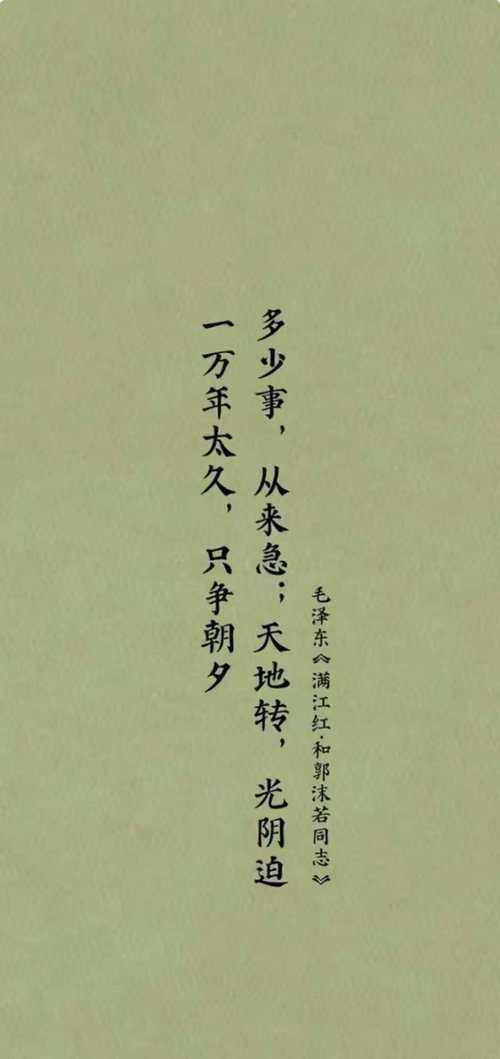 毛泽东《满江红·和郭沫若同志》
多少事，从来急；天地转，光阴迫
一万年太久，只争朝夕